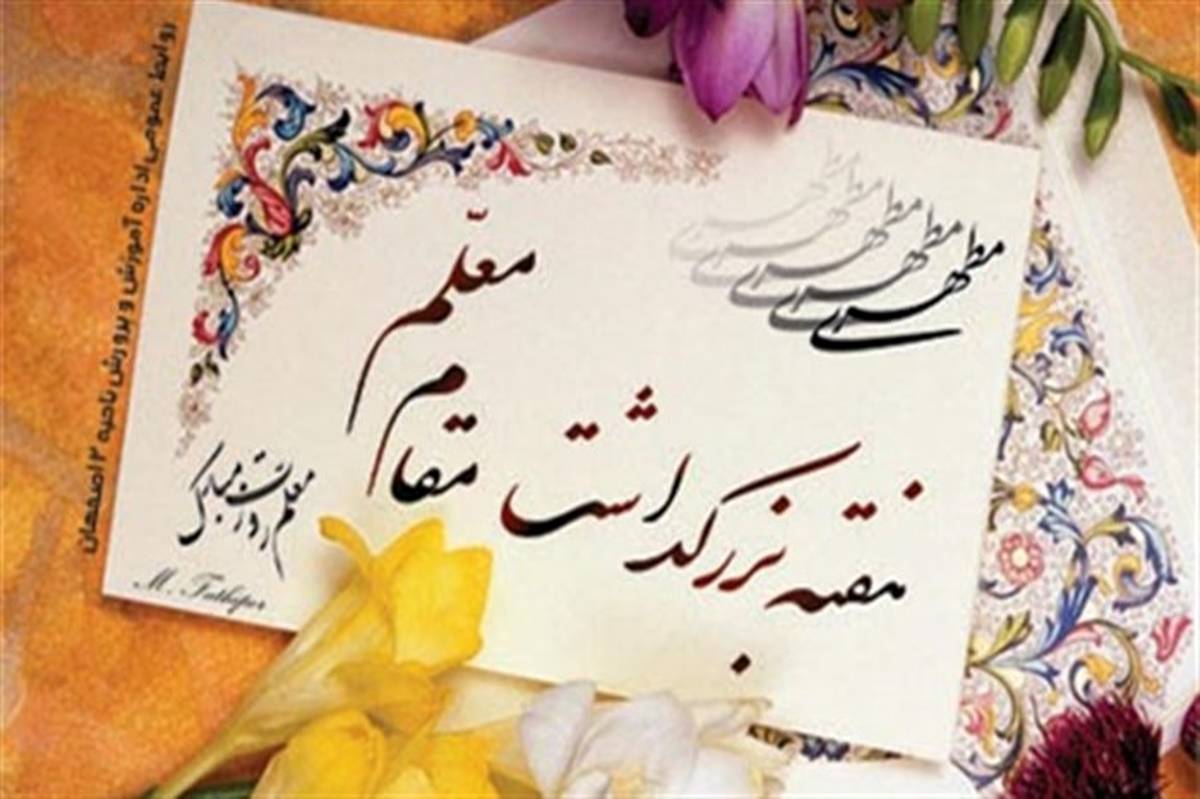 مطهری
مطهری
مطهری
مطهری
هفته بزرگداشت
مقام
معلّم
معلم روزت مبارک
M. Fathipor
روابط عمومی اداره آموزش و پرورش ناحیه ۲ اصفهان